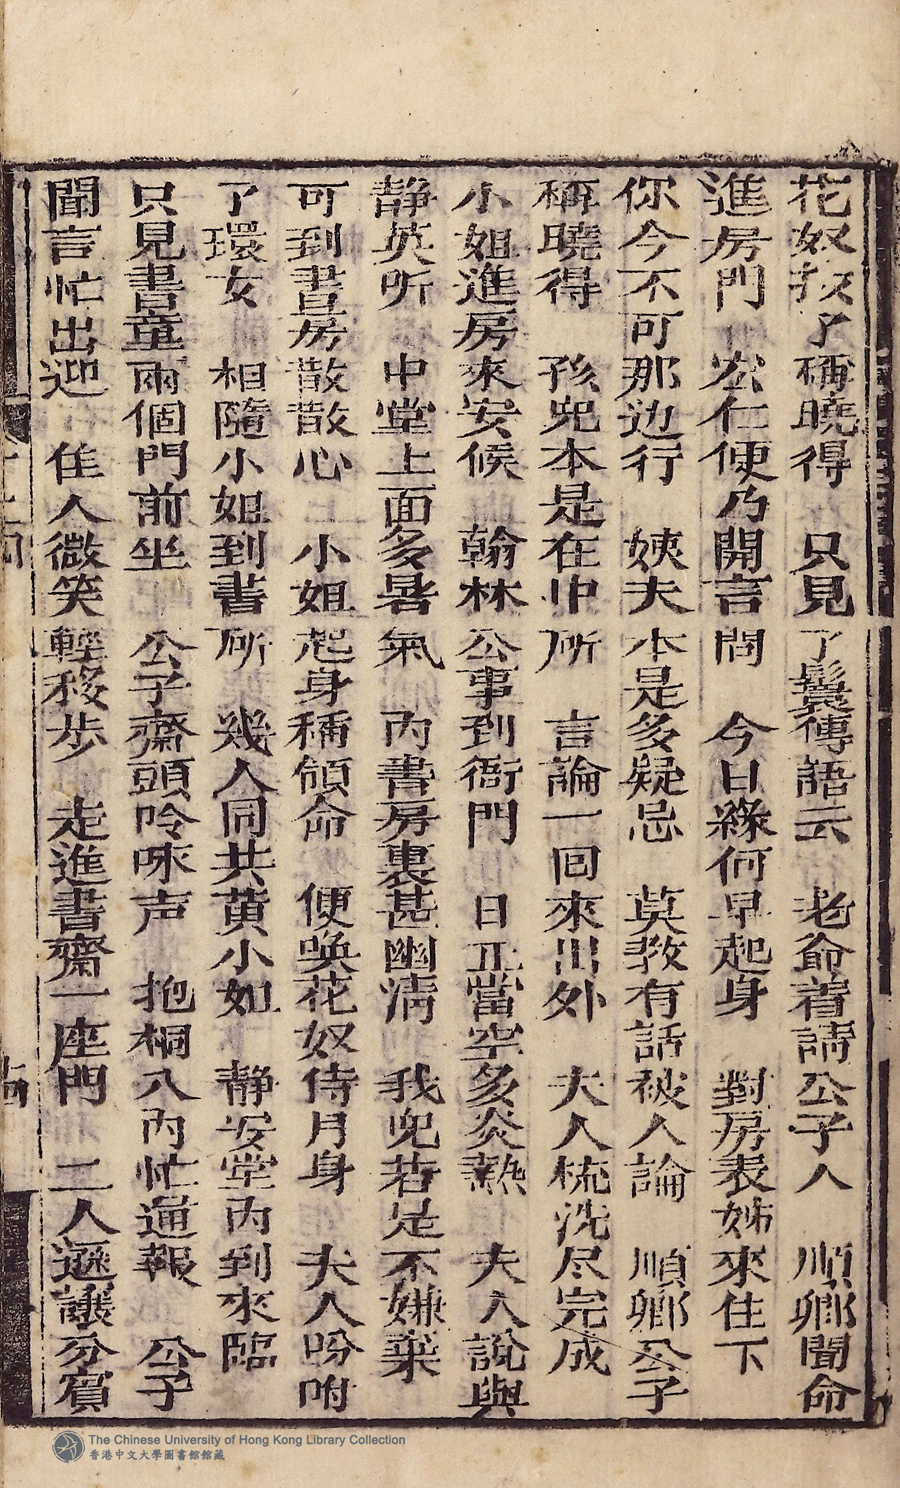 花奴孩子稱曉得　只見了鬟傳語云　老爺着請公子人　順卿聞命
進房門　宏仁便乃開言問　今日緣何早起身　對房表姊來住下
你今不可那边行　姨夫本是多疑忌　莫教有話被人論　順卿公子
稱曉得　孩兒本是在中所　言論一囬來出外　夫人梳洗尽完成
小姐進房來安候　翰林公事到衙門　日正當空多炎熱　夫人說與
靜英听　中堂上面多暑氣　內書房裏甚幽清　我兒若是不嫌棄
可到書房散散心　小姐起身稱領命　便喚花奴侍月身　夫人吩咐
了環女　相隨小姐到書所　幾人同共黄小姐　靜安堂內到來臨
只見書童兩個門前坐　公子齋頭吟咏声　抱桐入內忙通報　公子
聞言忙出迎　佳人微笑輕移步　走進書齋一座門　二人遜讓分賓
The Chinese University of Hong Kong Library Collection
香港中文大學圖書館館藏